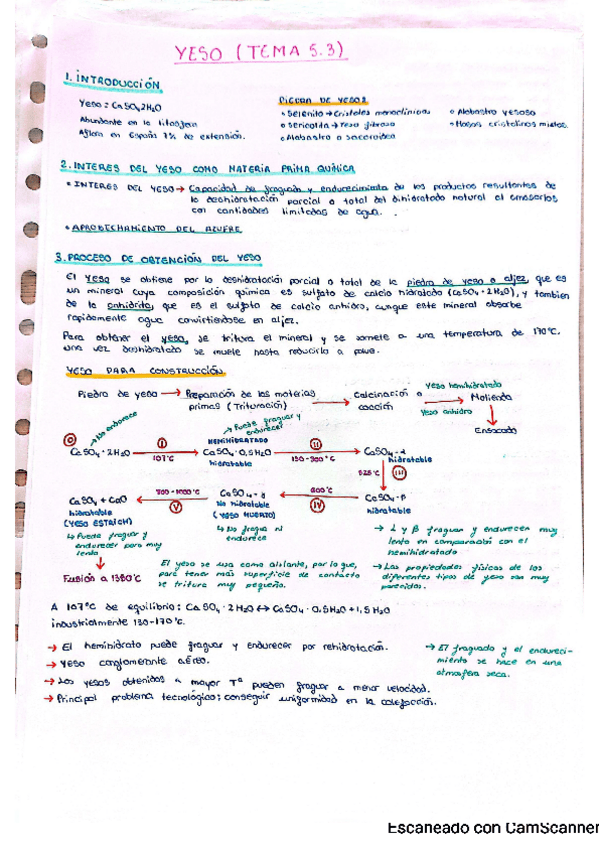 YESO (TEMA 5.3)
1. INTRODUCCIÓN
Yeso: CaSO4 2H2O
Abundante en la litosfera
Aflora en España 7% de extensión.
PIEDRA DE YESO:
• Selenita → Cristales monoclínicos
• Sericolita → Yeso fibroso
• Alabastro o sacaroidea
• Alabastro yesoso
• Masas cristalinas mixtas.
2. INTERES DEL YESO COMO MATERIA PRIMA QUÍMICA
• INTERES DEL YESO → Capacidad de fraguado y endurecimiento de los productos resultantes de
la deshidratación parcial o total del dihidratado natural al amasarlos
con cantidades limitadas de agua.
• APROVECHAMIENTO DEL AZUFRE
3. PROCESO DE OBTENCIÓN DEL YESO
El yeso se obtiene por la deshidratación parcial o total de la piedra de yeso o aljez, que es
un mineral cuya composición química es sulfato de calcio hidratado (CaSO4 · 2H2O), y tambien
de la anhidrita, que es el sulfato de calcio anhidro, aunque este mineral absorbe
rapidamente agua convirtiendose en aljez.
Para obtener el yeso, se tritura el mineral y se somete a una temperatura de 170°C.
una vez deshidratado se muele hasta reducirlo a polvo.
YESO PARA CONSTRUCCIÓN
Piedra de yeso → Preparación de las materias primas (Trituración) → Calcinación o cocción → Molienda
Yeso hemihidratado
Yeso anhidro
Ensacado
0
No endurece
CaSO4 · 2H2O
I
107°C
Puede fraguar y endurecer
HEMIHIDRATADO
CaSO4 · 0,5H2O
hidratable
II
CaSO4-α
hidratable
III
CaSO4-β
hidratable
600°C
IV
CaSO4-γ
No hidratable
(YESO MUERTO)
↳ No fragua ni
endurece
700-1000°C
V
CaSO4 + CaO
hidratable
(YESO ESTRICH)
↳ Puede fraguar y
endurecer pero muy
lento
Fusión a 1380°C
El yeso se usa como aislante, por lo que,
para tener más superficie de contacto
se tritura muy pequeño.
→ α y β fraguan y endurecen muy
lento en comparación con el
hemihidratado
→ Las propiedades físicas de los
diferentes tipos de yeso son muy
parecidas.
A 107°C de equilibrio: CaSO4 · 2H2O ↔ CaSO4 · 0.5H2O + 1,5 H2O
industrialmente 130-170°C.
→ El hemihidrato puede fraguar y endurecer por rehidratación.
→ Yeso conglomerante aéreo.
→ Los yesos obtenidos a mayor Tª pueden fraguar a menor velocidad.
→ Principal problema tecnológico: conseguir uniformidad en la calefacción.
→ El fraguado y el endureci-
miento se hace en una
atmosfera seca.
Escaneado con CamScanner